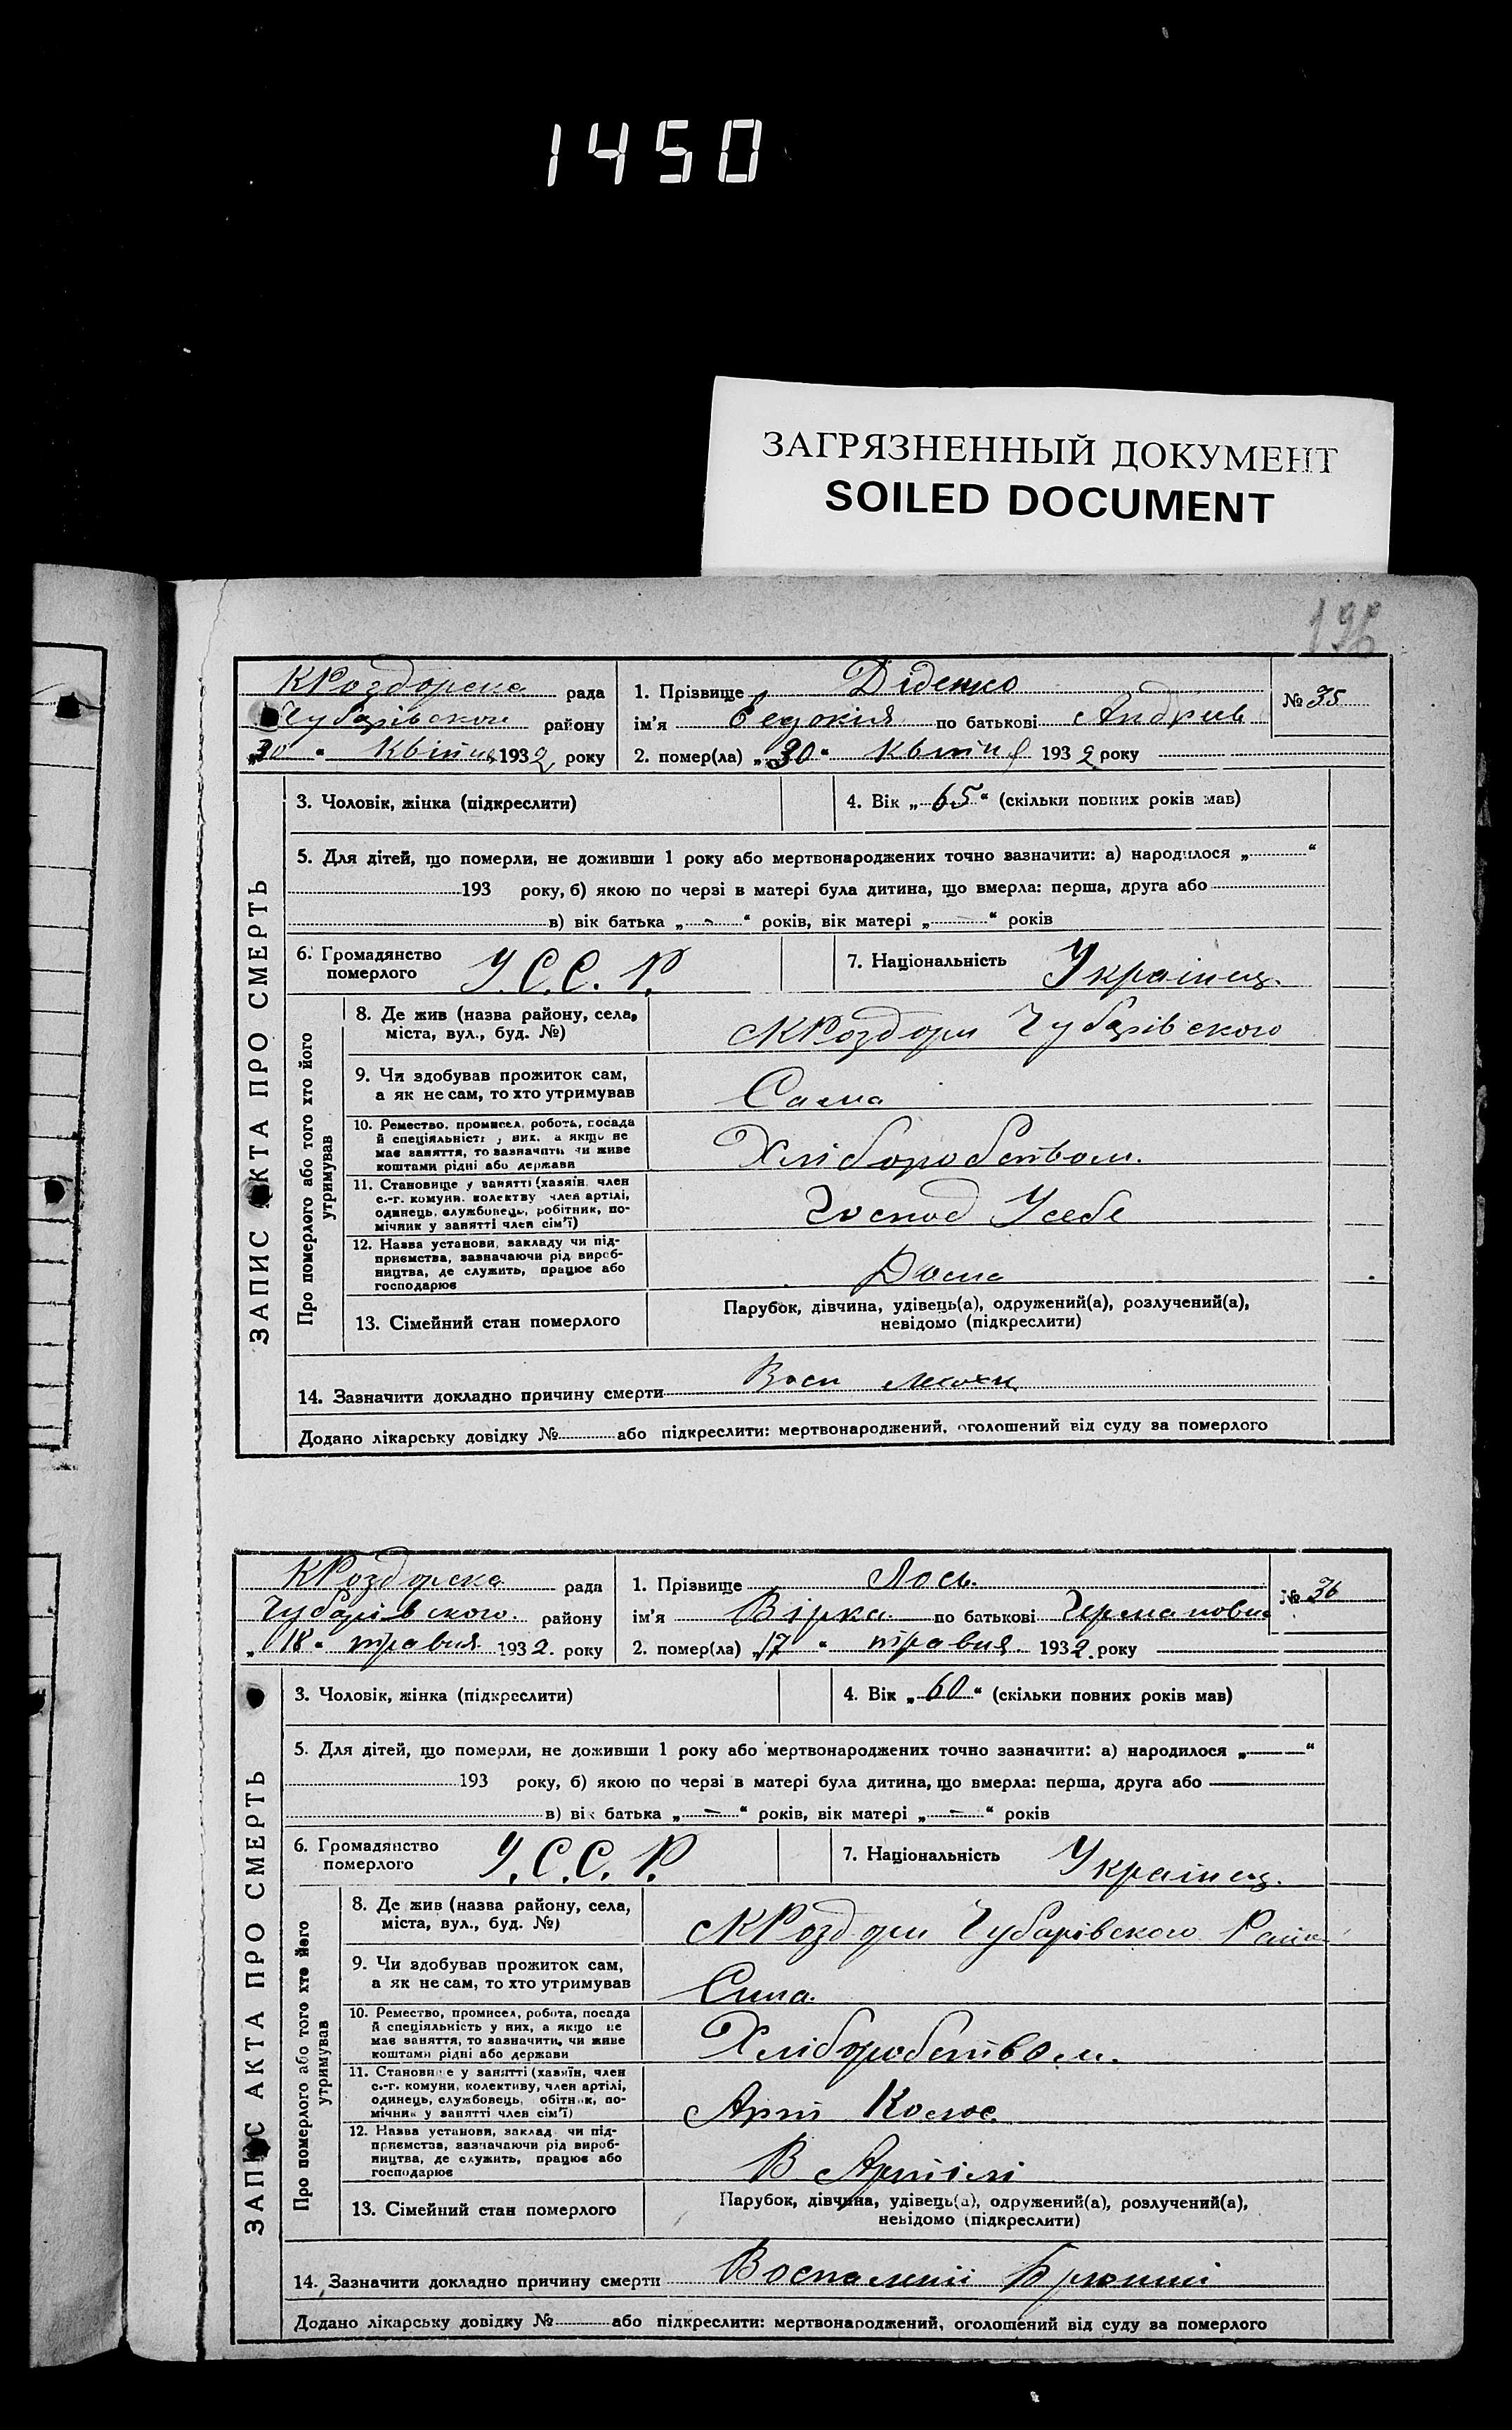 1450
ЗАГРЯЗНЕННЫЙ ДОКУМЕНТ
SOILED DOCUMENT
196
КРоздорска рада
Чубарівского району
„30“ Квітня 1932 року
1. Прізвище Діденко
ім'я Євдокія по батькові Андриев
2. помер(ла) „30“ Квітня 1932 року
№ 35
ЗАПИС АКТА ПРО СМЕРТЬ
3. Чоловік, жінка (підкреслити)
4. Вік „65“ (скільки повних років мав)
5. Для дітей, що померли, не доживши 1 року або мертвонароджених точно зазначити: а) народилося „ “
193 року, б) якою по черзі в матері була дитина, що вмерла: перша, друга або
в) вік батька „-“ років, вік матері „-“ років
6. Громадянство
померлого
У.С.С.Р.
7. Національність Українец.
Про померлого або того хто його
утримував
8. Де жив (назва району, села,
міста, вул., буд. №)
сКРоздори Чубарівского
9. Чи здобував прожиток сам,
а як не сам, то хто утримував
Сама
10. Ремество, промисел, робота, посада
й спеціяльність у них, а якщо не
має заняття, то зазначити чи живе
коштами рідні або держави
Хліборобством.
11. Становище у занятті (хазяїн, член
с.-г. комуни, колективу член артілі,
одинець, службовець, робітник, по-
мічник у занятті член сім'ї)
Господ Усебе
12. Назва установи, закладу чи під-
приємства, зазначаючи рід вироб-
ництва, де служить, працює або
господарює
Дома
13. Сімейний стан померлого
Парубок, дівчина, удівець(а), одружений(а), розлучений(а),
невідомо (підкреслити)
14. Зазначити докладно причину смерти Восп
Додано лікарську довідку № або підкреслити: мертвонароджений, оголошений від суду за померлого
КРоздорска рада
Чубарівского району
„18“ травня 1932. року
1. Прізвище Лось.
ім'я Вірка по батькові Германовна
2. помер(ла) „17“ травня 1932. року
№ 36
ЗАПИС АКТА ПРО СМЕРТЬ
3. Чоловік, жінка (підкреслити)
4. Вік „60“ (скільки повних років мав)
5. Для дітей, що померли, не доживши 1 року або мертвонароджених точно зазначити: а) народилося „ “
193 року, б) якою по черзі в матері була дитина, що вмерла: перша, друга або
в) вік батька „-“ років, вік матері „-“ років
6. Громадянство
померлого
У.С.С.Р.
7. Національність Українец.
Про померлого або того хто його
утримував
8. Де жив (назва району, села,
міста, вул., буд. №)
сКРоздори Чубарівского Райн
9. Чи здобував прожиток сам,
а як не сам, то хто утримував
Сама.
10. Ремество, промисел, робота, посада
й спеціяльність у них, а якщо не
має заняття, то зазначити, чи живе
коштами рідні або держави
Хліборобством.
11. Становище у занятті (хазяїн, член
с.-г. комуни, колективу, член артілі,
одинець, службовець, робітник, по-
мічник у занятті член сім'ї)
Арті Колос.
12. Назва установи, заклад чи під-
приємства, зазначаючи рід вироб-
ництва, де служить, працює або
господарює
В Артілі
13. Сімейний стан померлого
Парубок, дівчина, удівець(а), одружений(а), розлучений(а),
невідомо (підкреслити)
14. Зазначити докладно причину смерти Воспаленіі Брюшні
Додано лікарську довідку № або підкреслити: мертвонароджений, оголошений від суду за померлого